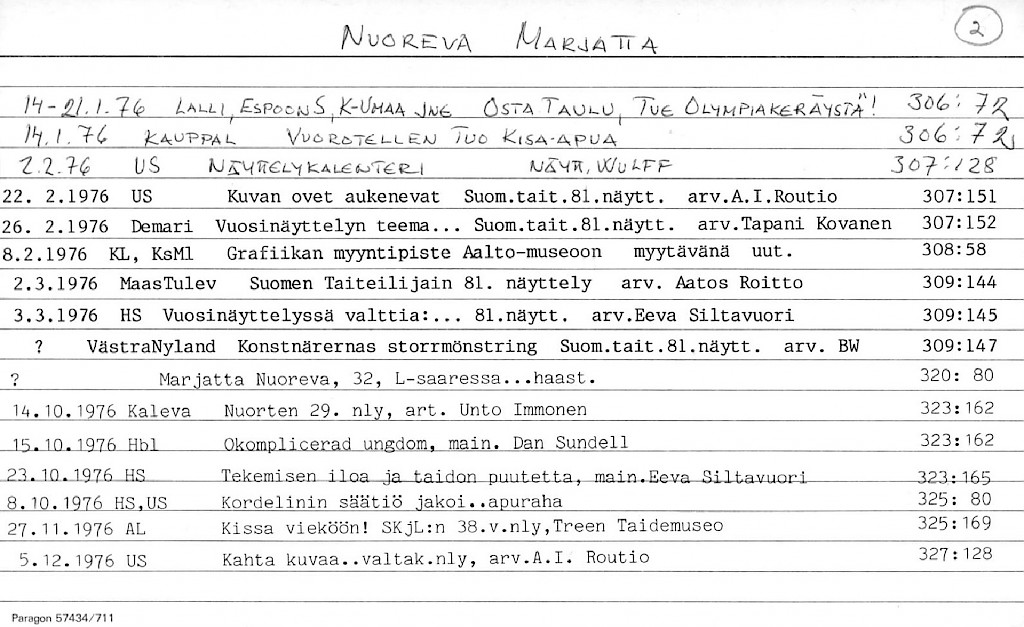 NUOREVA MARJATTA 2
14-21.1.76 LALLI, ESPOONS, K-UMAA JNE OSTA TAULU, TUE OLYMPIAKERÄYSTÄ! 306:72
14.1.76 KAUPPAL VUOROTELLEN TUO KISA-APUA 306:72
2.2.76 US NÄYTTELYKALENTERI NÄYTT, WULFF 307:128
22. 2.1976 US Kuvan ovet aukenevat Suom.tait.81.näytt. arv.A.I.Routio 307:151
26. 2.1976 Demari Vuosinäyttelyn teema... Suom.tait.81.näytt. arv.Tapani Kovanen 307:152
8.2.1976 KL, KsMl Grafiikan myyntipiste Aalto-museoon myytävänä uut. 308:58
2.3.1976 MaasTulev Suomen Taiteilijain 81. näyttely arv. Aatos Roitto 309:144
3.3.1976 HS Vuosinäyttelyssä valttia:... 81.näytt. arv.Eeva Siltavuori 309:145
? VästraNyland Konstnärernas storrmönstring Suom.tait.81.näytt. arv. BW 309:147
? Marjatta Nuoreva, 32, L-saaressa...haast. 320: 80
14.10.1976 Kaleva Nuorten 29. nly, art. Unto Immonen 323:162
15.10.1976 Hbl Okomplicerad ungdom, main. Dan Sundell 323:162
23.10.1976 HS Tekemisen iloa ja taidon puutetta, main.Eeva Siltavuori 323:165
8.10.1976 HS,US Kordelinin säätiö jakoi..apuraha 325: 80
27.11.1976 AL Kissa vieköön! SKjL:n 38.v.nly,Treen Taidemuseo 325:169
5.12.1976 US Kahta kuvaa..valtak.nly, arv.A.I. Routio 327:128
Paragon 57434/711